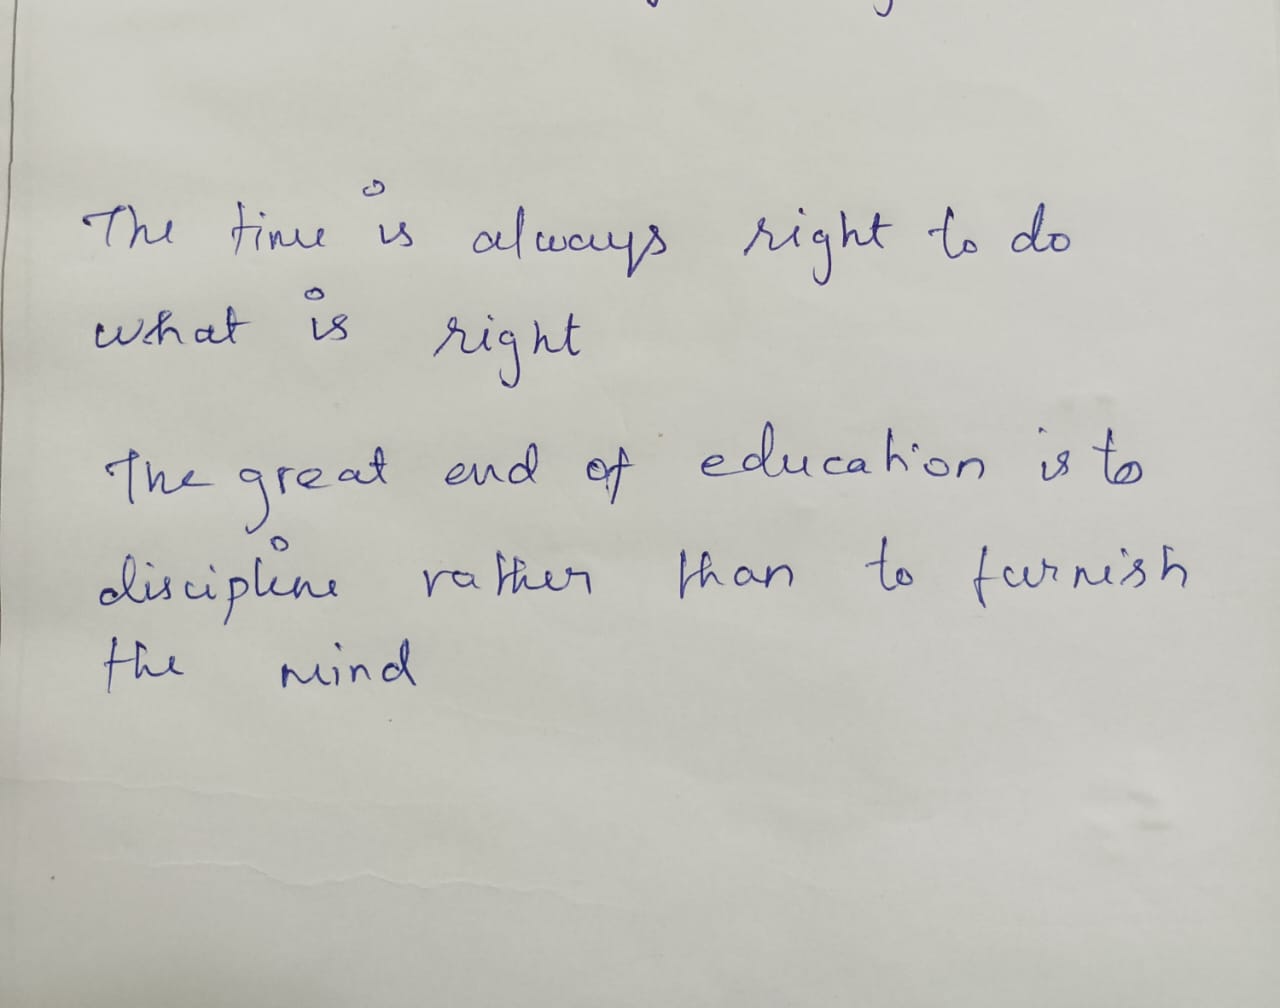 The time is always right to do
what is right
The great end of education is to
discipline rather than to furnish
the mind